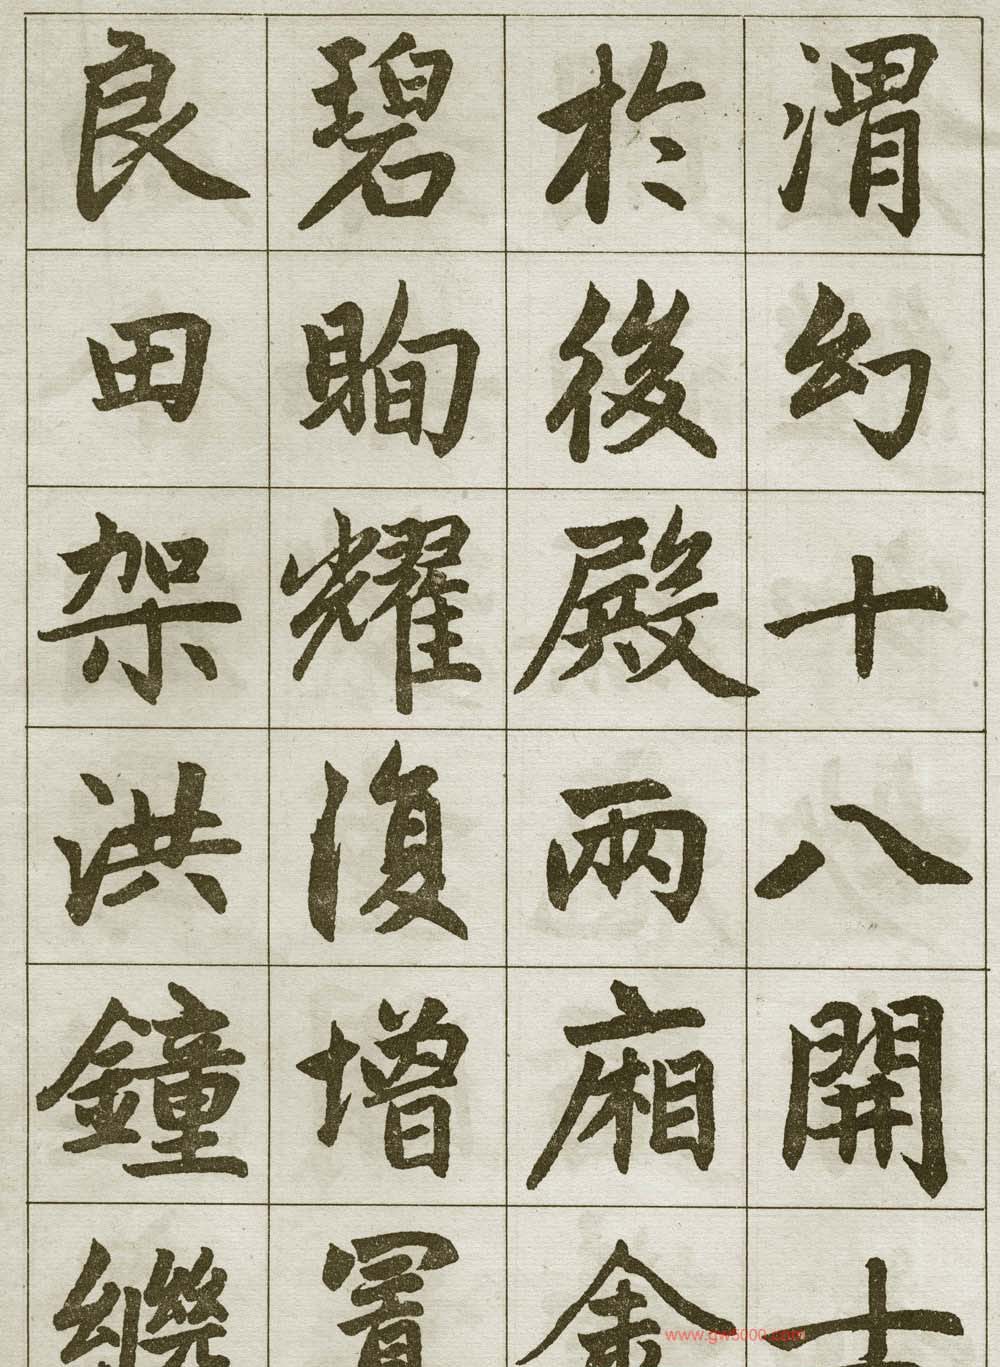 渭幻十八開士
於後殿兩廂金
碧眴耀復增置
良田架洪鐘繼
www.gw5000.com